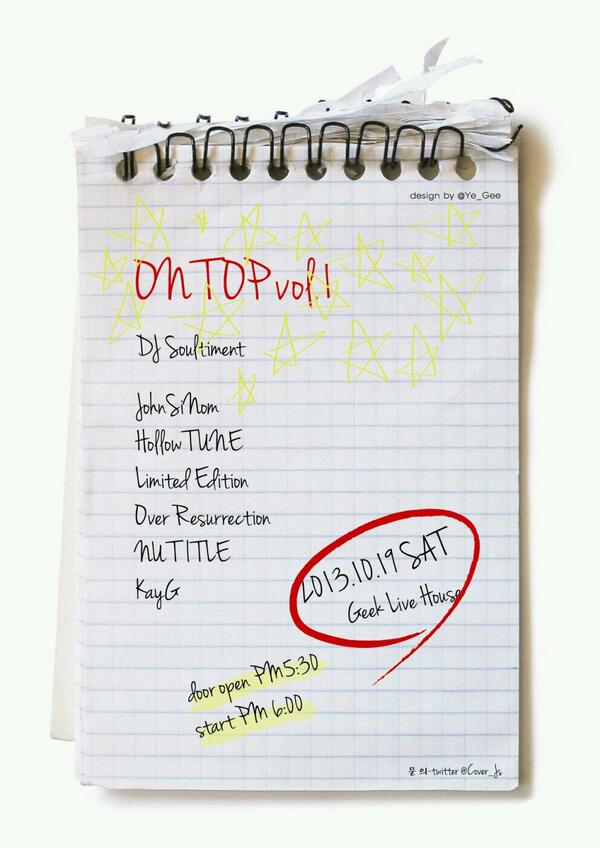 design by @Ye_Gee
ON TOP vol.1
DJ Soultiment
John SiNom
Hollow TUNE
Limited Edition
Over Resurrection
NUTITLE
KayG
2013.10.19 SAT
Geek Live House
door open PM5:30
start PM 6:00
문 의-twitter @Cover_Js